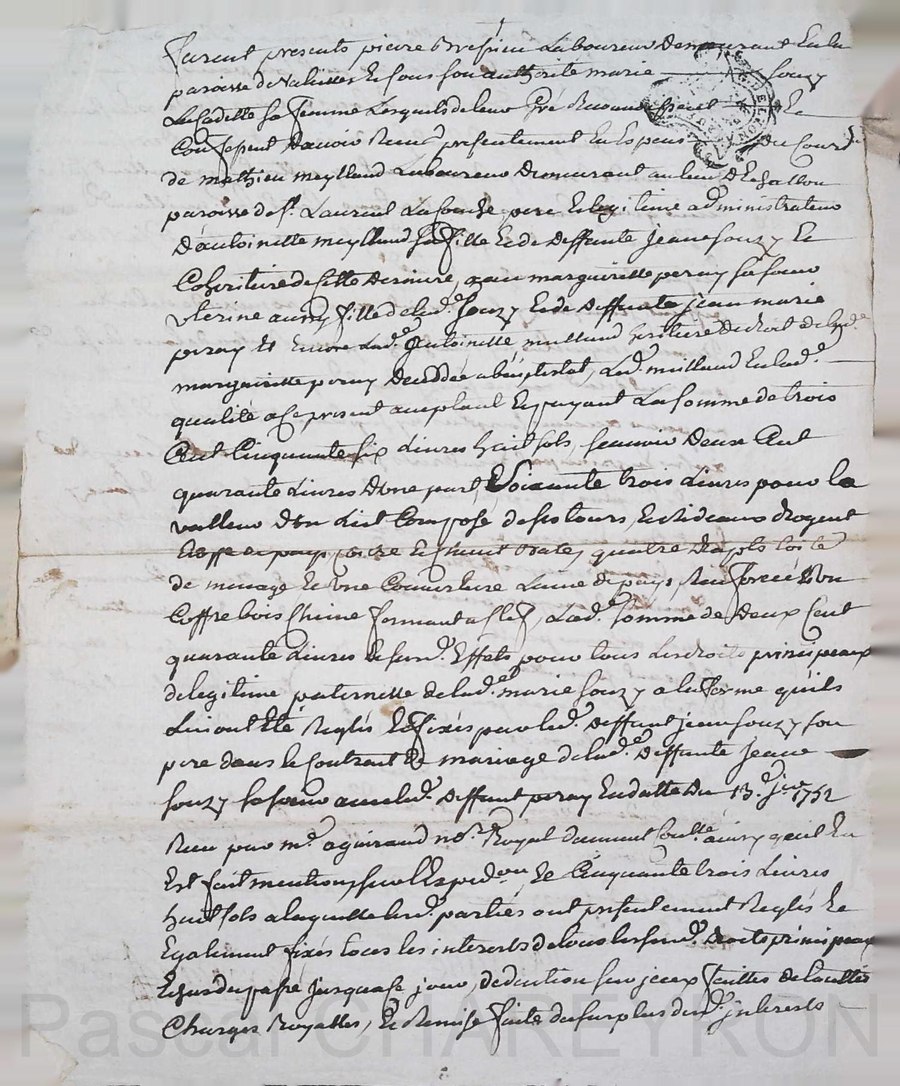 furent presents pierre Laboureur Demeurant En la
paroisse de et sous son authorité marie Souzy
La Cadette sa femme Lesquels de leur Gré
Confessent D'avoir Reçu presentement En Espeus du Cours
de mathieu meylland Laboureur Demeurant au lieu
paroisse de St. Laurent pere Et legitime administrateur
D'antoinette meylland sa fille Et de Deffunte Jeane Souzy Et
Cohéritiere de Cette Derniere, avec margueritte peray sa soeur
uterine aussy fille de lad.e Souzy Et de Deffunt jean marie
peray Et Encore Lad.e Antoinette meilland heritiere de droit de lad.e
margueritte peray Decedée abinstestat, Led. meilland En lad.e
qualité a Ce present acceptant Et payant La somme de trois
Cent Cinquante six Livres huit sols, scavoir Deux Cent
quarante Livres D'une part, Soixante trois Livres pour la
valleur D'un Lict Composé de ses tours, Et Rideaux
quatre Draps toile
de menage Et une Couverture Laine de pays, Et un
Coffre bois Chene fermant a Clef, Lad.e somme de Deux Cent
quarante Livres Et sus.d Effets pour tous Les droits principeaux
de legitime paternelle de lad.e marie Souzy a la forme qu'ils
Lui ont Eté Reglés Et fixés par led. Deffunt jean Souzy son
pere dans le Contract de mariage de lad.e Deffunte Jeane
Souzy sa soeur avec led. Deffunt peray En datte Du 13.e 1752
Recu par m.e aguiraud no.re Royal ainsy qu'il En
Est fait mention sur l'Expedon, Et Cinquante trois Livres
huit sols a laquelle lesd. parties ont presentement Reglés Et
Egalement fixés tous les interests de tous les sus.d Droits principeaux
Echus du passé jusqu'a Ce jour, deduction sur jceux faittes de la cotte
Charges Royalles, Et Remise faite du surplus desd. jnterests
Pascal CHAREYRON